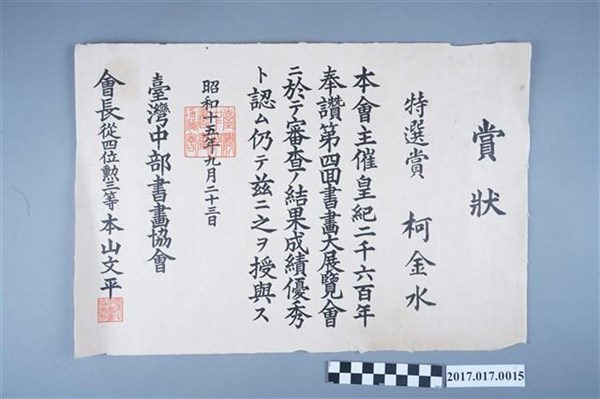 賞狀
特選賞　柯金水
本會主催皇紀二千六百年
奉讚第四回書畫大展覽會
ニ於テ審查ノ結果成績優秀
ト認ム仍テ茲ニ之ヲ授與ス
昭和十五年九月二十三日
臺灣中部書畫協會
會長從四位勲三等本山文平
2017.017.0015